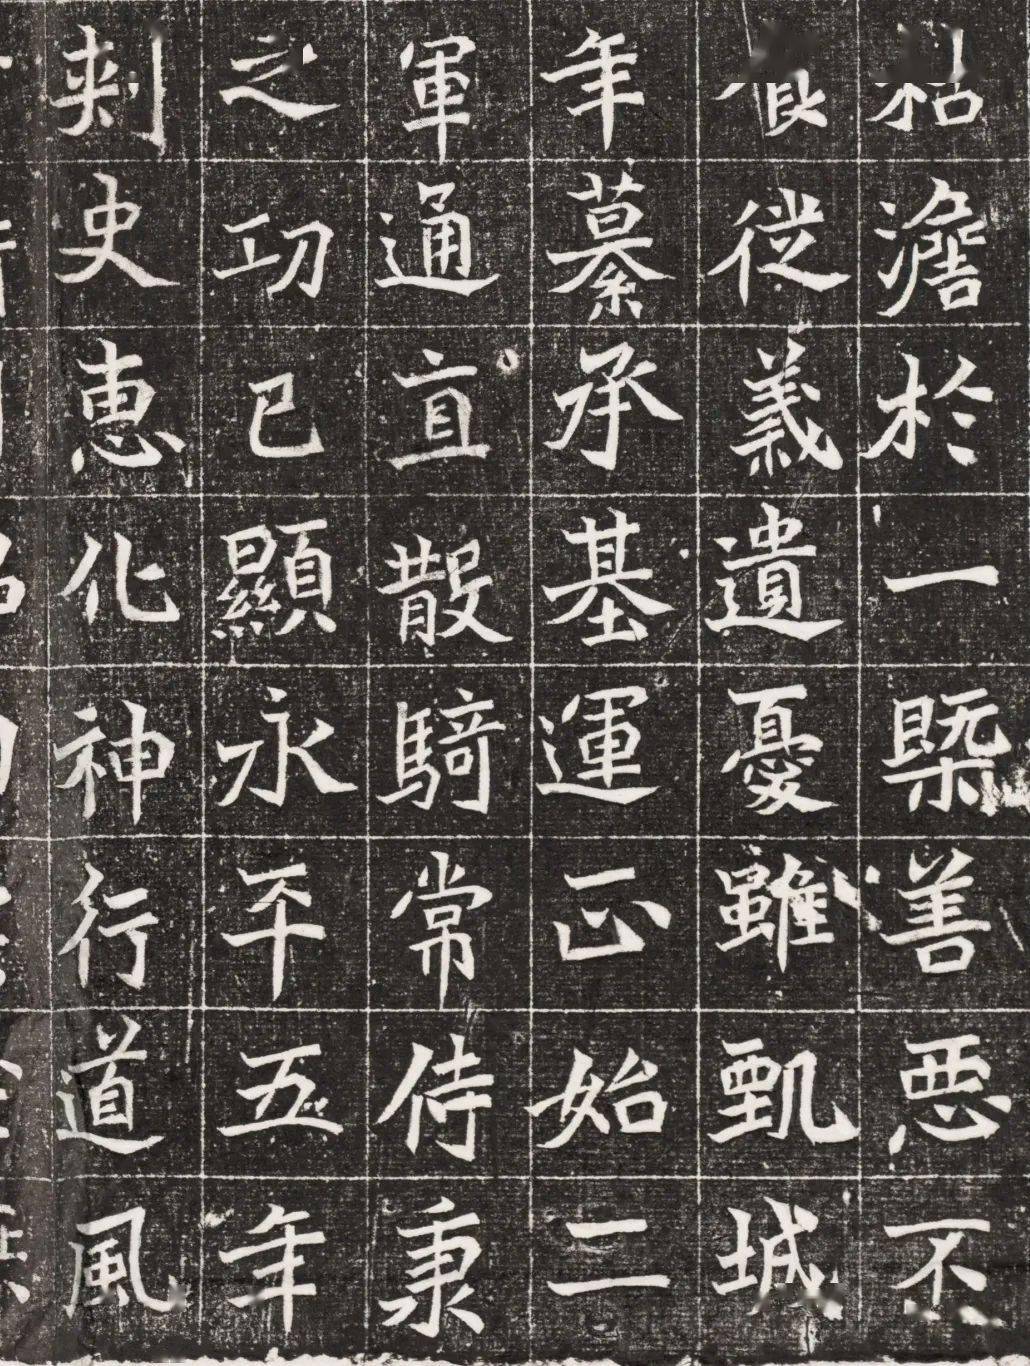 澹於一槩善惡不
從義遺憂雖甄城
年纂承基運正始二
軍通直散騎常侍秉
之功已顯永平五年
刺史惠化神行道風